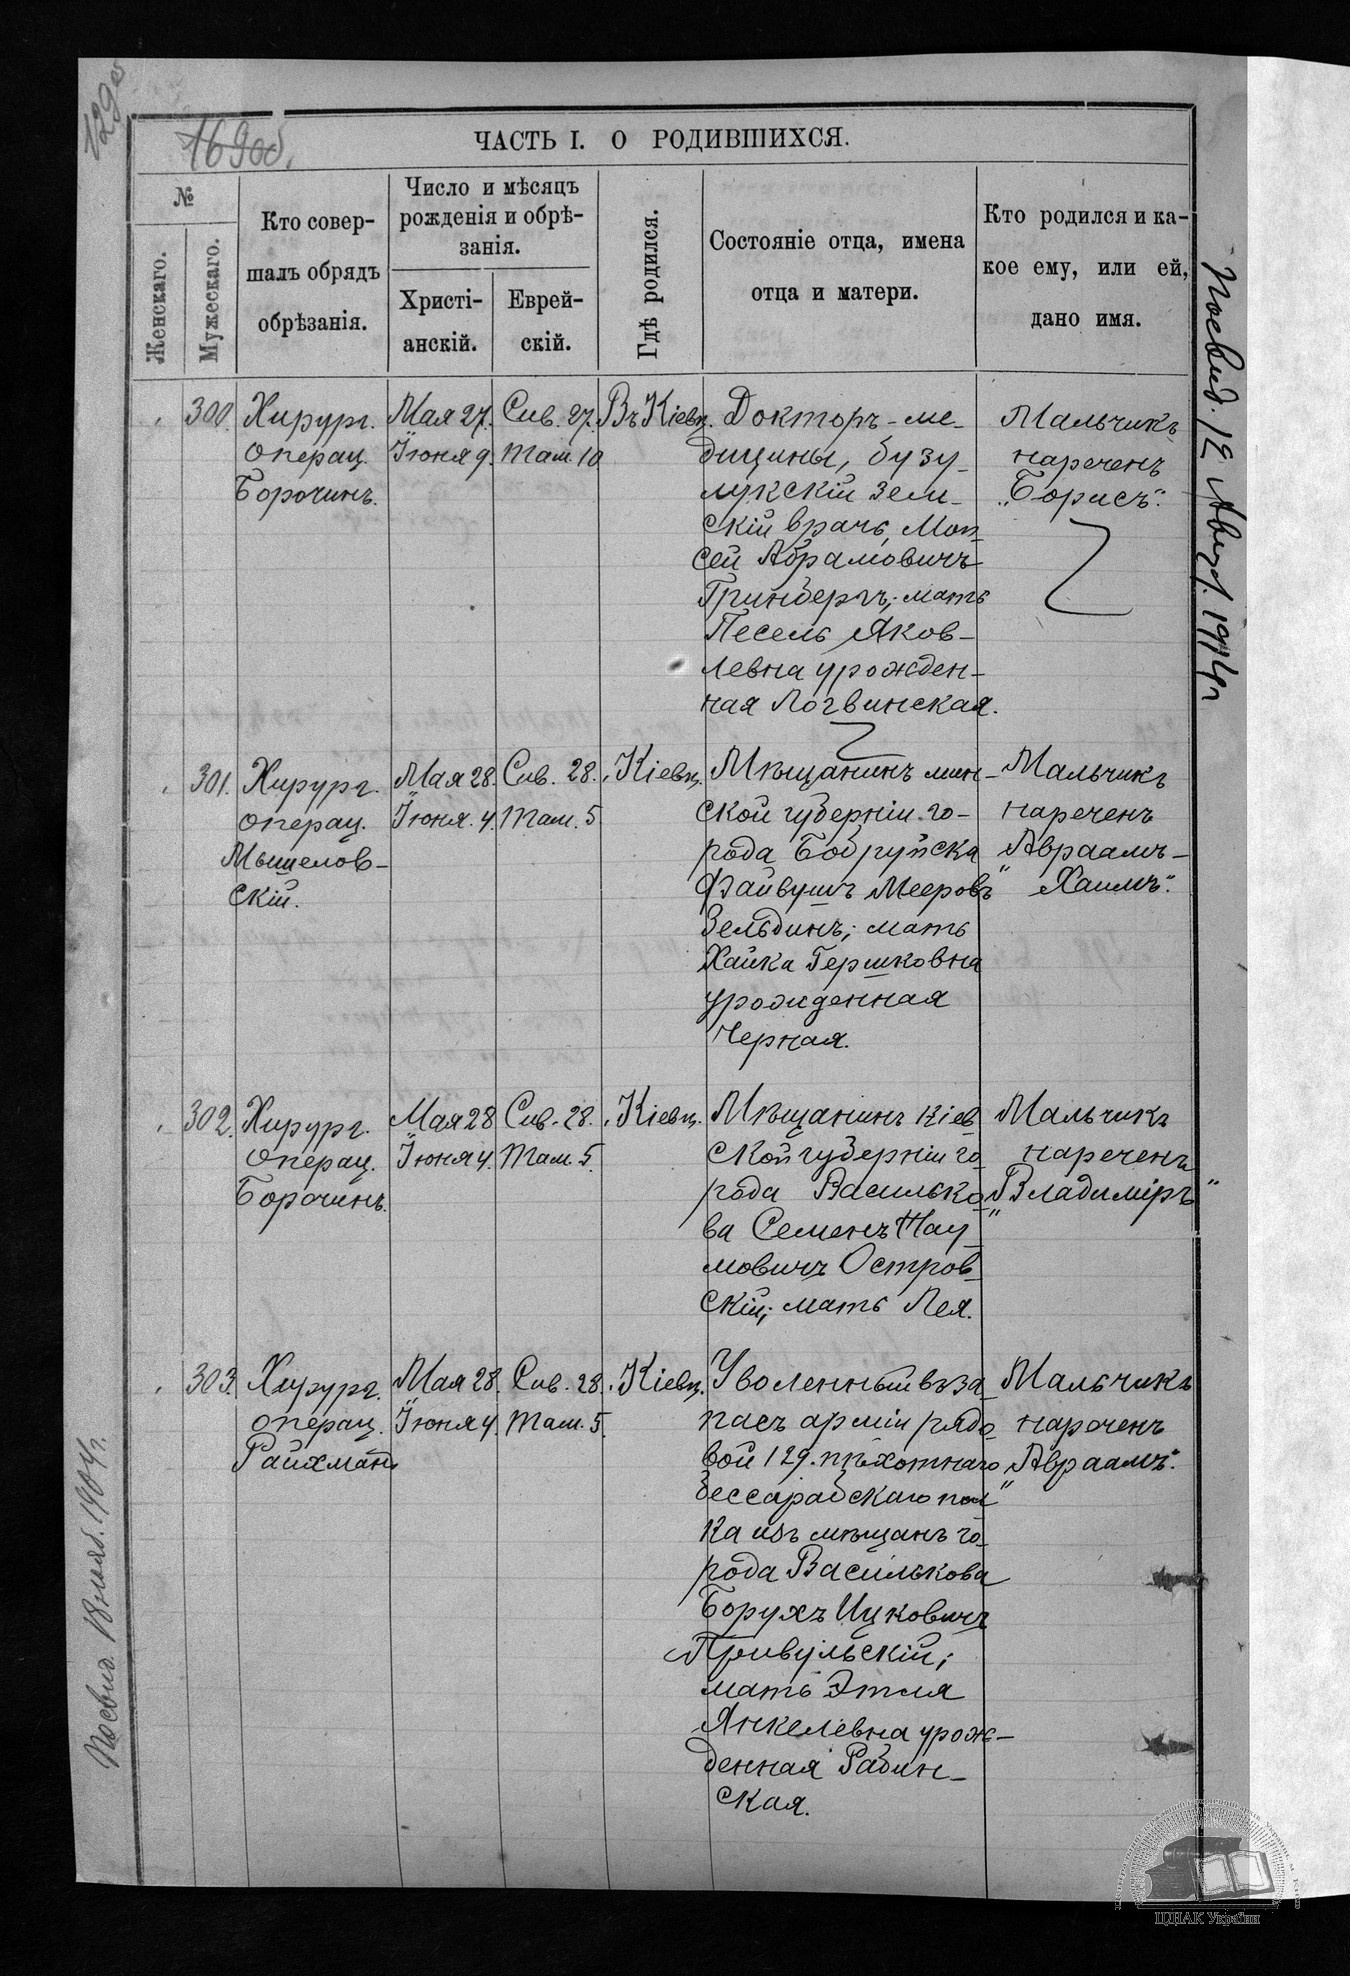 129об
169об.
ЧАСТЬ I. О РОДИВШИХСЯ.
№
Женскаго.
Мужескаго.
Кто совер-
шалъ обрядъ
обрѣзанія.
Число и мѣсяцъ
рожденія и обрѣ-
занія.
Христі-
анскій.
Еврей-
скій.
Гдѣ родился.
Состояніе отца, имена
отца и матери.
Кто родился и ка-
кое ему, или ей,
дано имя.
300.
Хирург.
операц.
Борочинъ.
Мая 27.
Іюня 9.
Сив. 27.
Там. 10
Въ Кіевѣ.
Докторъ-ме-
дицины, бузу-
лукскій зем-
скій врачъ, Мои-
сей Абрамовичъ
Гринбергъ; мать
Песель Яков-
левна урожден-
ная Логвинская.
Мальчикъ
нареченъ
„Борисъ“.
301.
Хирург.
операц.
Мышелов-
скій.
Мая 28.
Іюня. 4.
Сив. 28.
Там. 5
Кіевѣ.
Мѣщанинъ мин-
ской губерніи го-
рода Бобруйска
Файвушъ Мееровъ
Зельдинъ; мать
Хайка Гершковна
урожденная
Черная.
Мальчикъ
нареченъ
Авраамъ-
„Хаимъ“.
302.
Хирург.
операц.
Борочинъ.
Мая 28
Іюня 4.
Сив. 28.
Там. 5.
Кіевѣ.
Мѣщанинъ кіев-
ской губерніи го-
рода Василько-
ва Семенъ Нау-
мовичъ Остров-
скій; мать Лея.
Мальчикъ
нареченъ
„Владиміръ“
303.
Хирург.
операц.
Райхман
Мая 28.
Іюня 4.
Сив. 28.
Там. 5.
Кіевѣ.
Уволенный въ за-
пасъ арміи рядо-
вой 129. пѣхотнаго
бессарабскаго пол-
ка изъ мѣщанъ го-
рода Василькова
Борухъ Ицковичъ
Привульскій;
мать Этля
Янкелевна урож-
денная Рабин-
ская.
Мальчикъ
нареченъ
„Авраамъ“.
Посвид. 12 Август. 1914 г
Посвид. 18 нояб. 1904 г.
ЦДІАК України